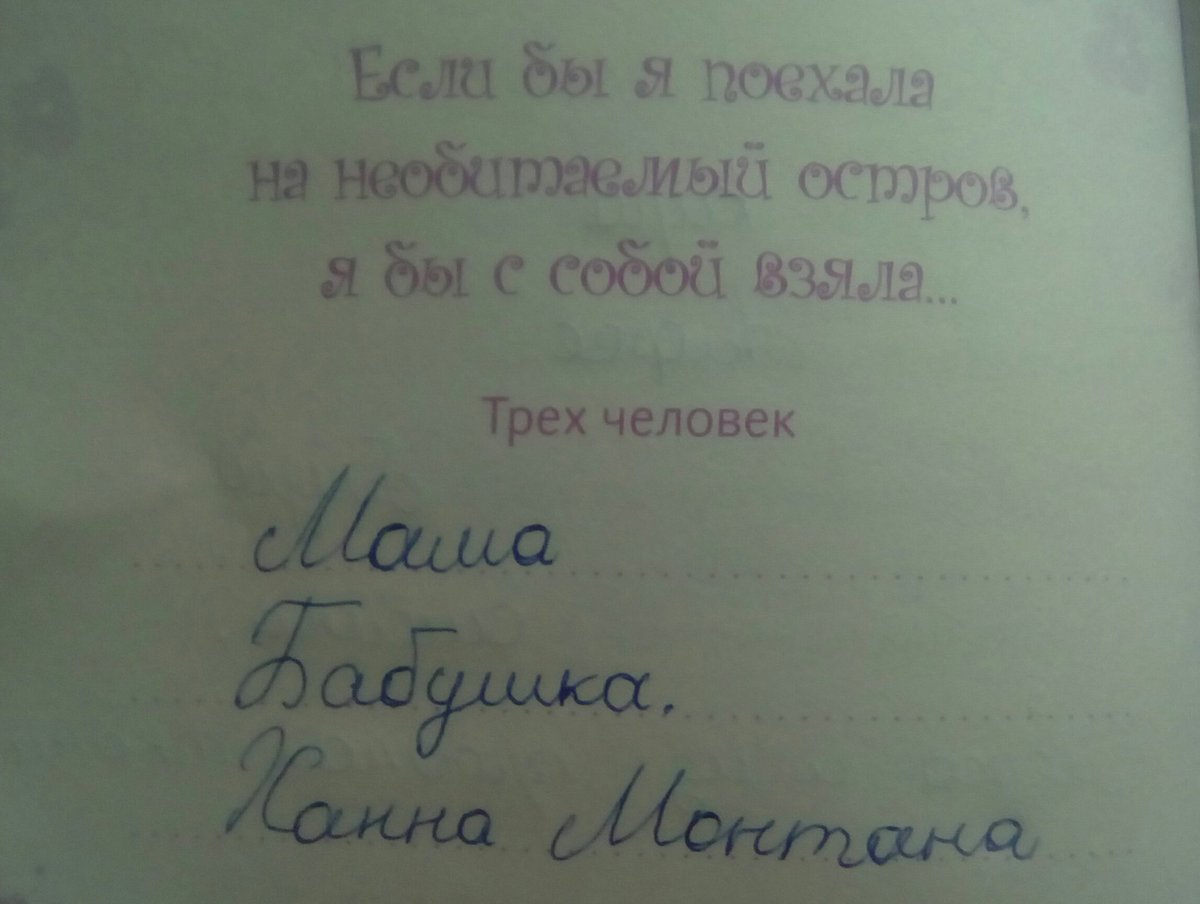 Если бы я поехала
на необитаемый остров,
я бы с собой взяла...
Трех человек
Мама
Бабушка.
Ханна Монтана